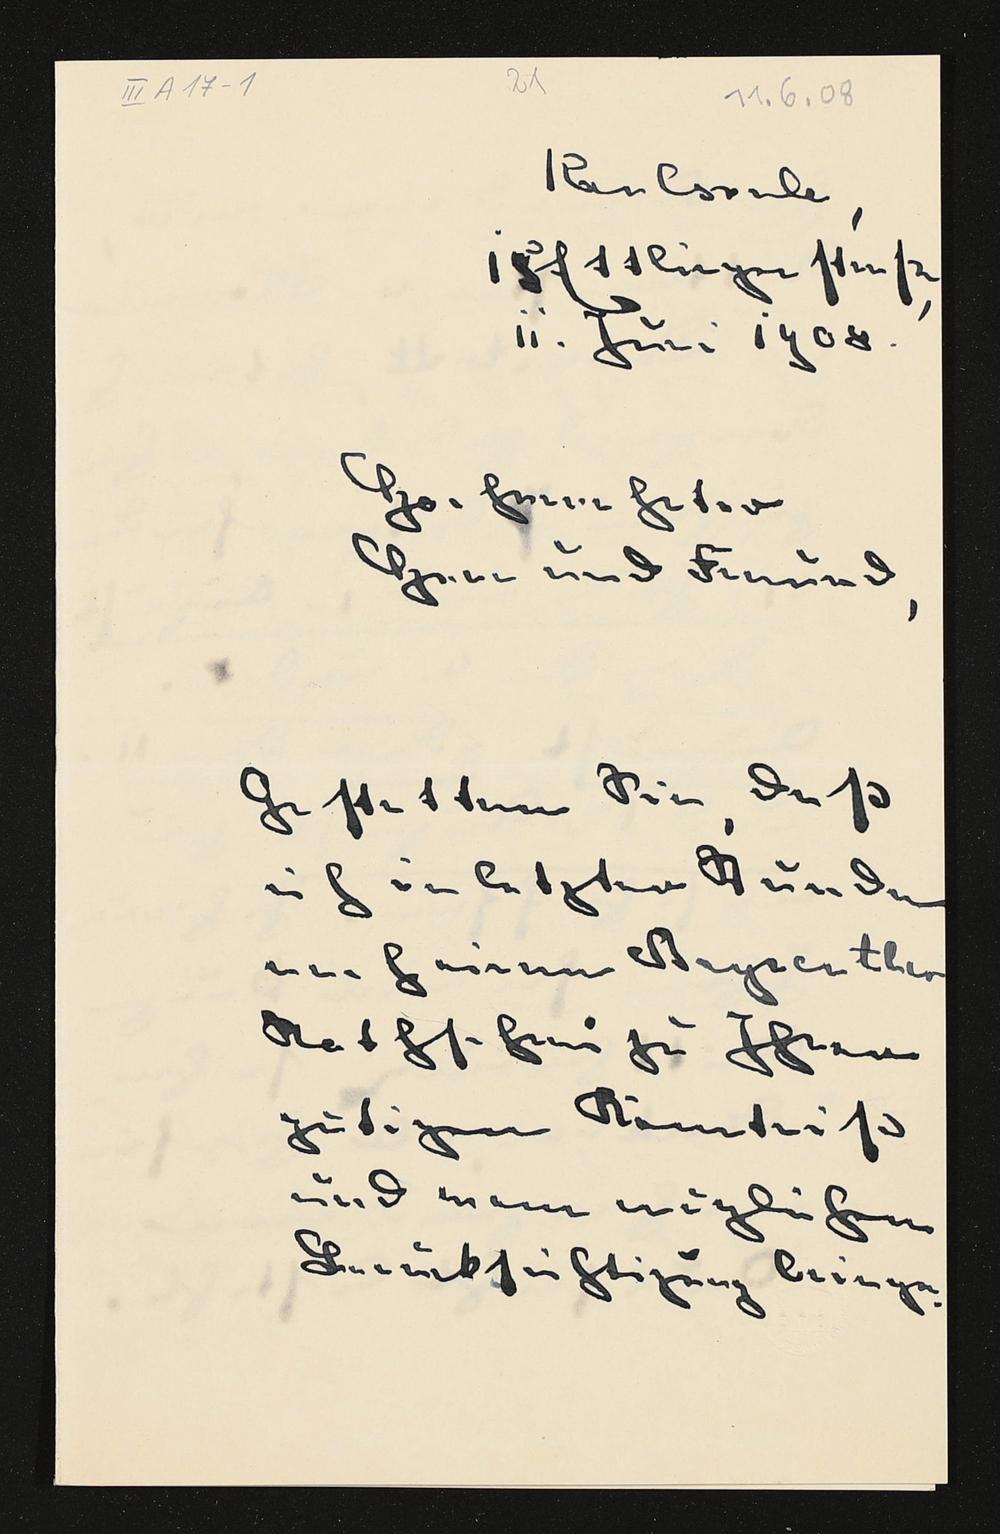 III A 17-1
21
11.6.08
Karlsruhe,
Ettlinger straße,
11. Juni 1908.
Hochverehrter
Herr und Freund,
Gestatten Sie, daß
ich in letzter Stunde
noch einen Bayreuther
Nothschrei zu Ihrer
gütigen Kenntniß
und wenn möglichen
Berücksichtigung bringe.